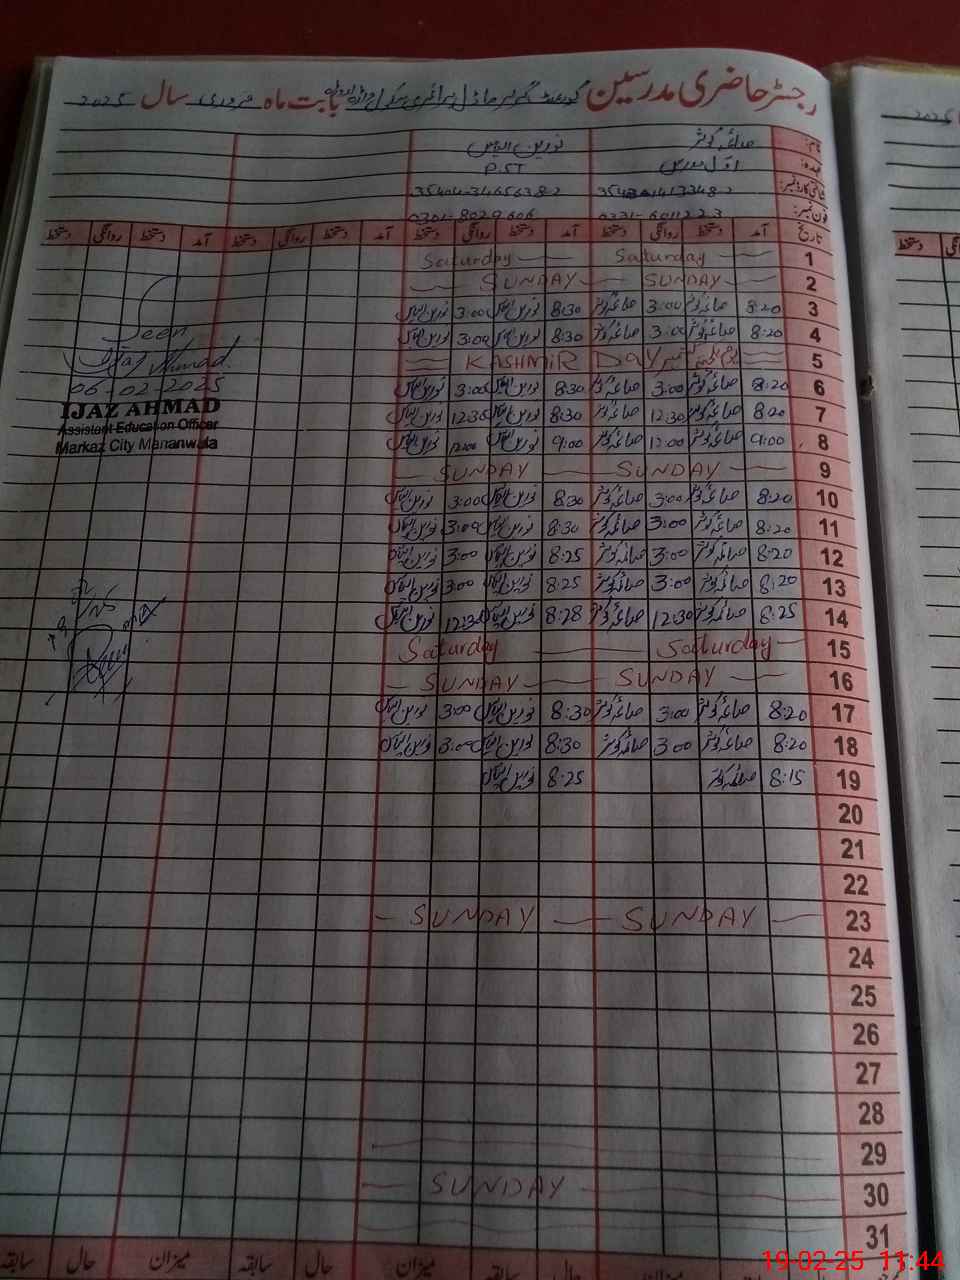 رجسٹر حاضری مدرسین گورنمنٹ گرلز ماڈل پرائمری سکول بابت ماہ فروری سال 2025
نام: صائمہ کوثر نورین الیاس
عہدہ: اول مدرس P.S.T
شناختی کارڈ نمبر:
فون نمبر: 0331-6011223 0301-8029606
تاریخ آمد دستخط روانگی دستخط آمد دستخط روانگی دستخط آمد دستخط روانگی دستخط آمد دستخط روانگی دستخط
1 Saturday Saturday
2 SUNDAY SUNDAY
3 8:20 صائمہ کوثر 3:00 صائمہ کوثر 8:30 نورین الیاس 3:00 نورین الیاس
4 8:20 صائمہ کوثر 3:00 صائمہ کوثر 8:30 نورین الیاس 3:00 نورین الیاس
5 KASHMIR DAY
6 8:20 صائمہ کوثر 3:00 صائمہ کوثر 8:30 نورین الیاس 3:00 نورین الیاس
7 8:20 صائمہ کوثر 12:30 صائمہ کوثر 8:30 نورین الیاس 12:30 نورین الیاس
8 9:00 صائمہ کوثر 12:00 صائمہ کوثر 9:00 نورین الیاس 12:00 نورین الیاس
9 SUNDAY SUNDAY
10 8:20 صائمہ کوثر 3:00 صائمہ کوثر 8:30 نورین الیاس 3:00 نورین الیاس
11 8:20 صائمہ کوثر 3:00 صائمہ کوثر 8:30 نورین الیاس 3:00 نورین الیاس
12 8:20 صائمہ کوثر 3:00 صائمہ کوثر 8:25 نورین الیاس 3:00 نورین الیاس
13 8:20 صائمہ کوثر 3:00 صائمہ کوثر 8:25 نورین الیاس 3:00 نورین الیاس
14 8:25 صائمہ کوثر 12:30 صائمہ کوثر 8:28 نورین الیاس 12:30 نورین الیاس
15 Saturday Saturday
16 SUNDAY SUNDAY
17 8:20 صائمہ کوثر 3:00 صائمہ کوثر 8:30 نورین الیاس 3:00 نورین الیاس
18 8:20 صائمہ کوثر 3:00 صائمہ کوثر 8:30 نورین الیاس 3:00 نورین الیاس
19 8:15 صائمہ کوثر 8:25 نورین الیاس
20
21
22
23 SUNDAY SUNDAY
24
25
26
27
28
29
30 SUNDAY
31
میزان حال سابقہ میزان حال سابقہ
Seen
Ijaz Ahmad
06-02-2025
IJAZ AHMAD
Assistant Education Officer
Markaz City Mananwala
2025
دستخط
19-02-25 11:44